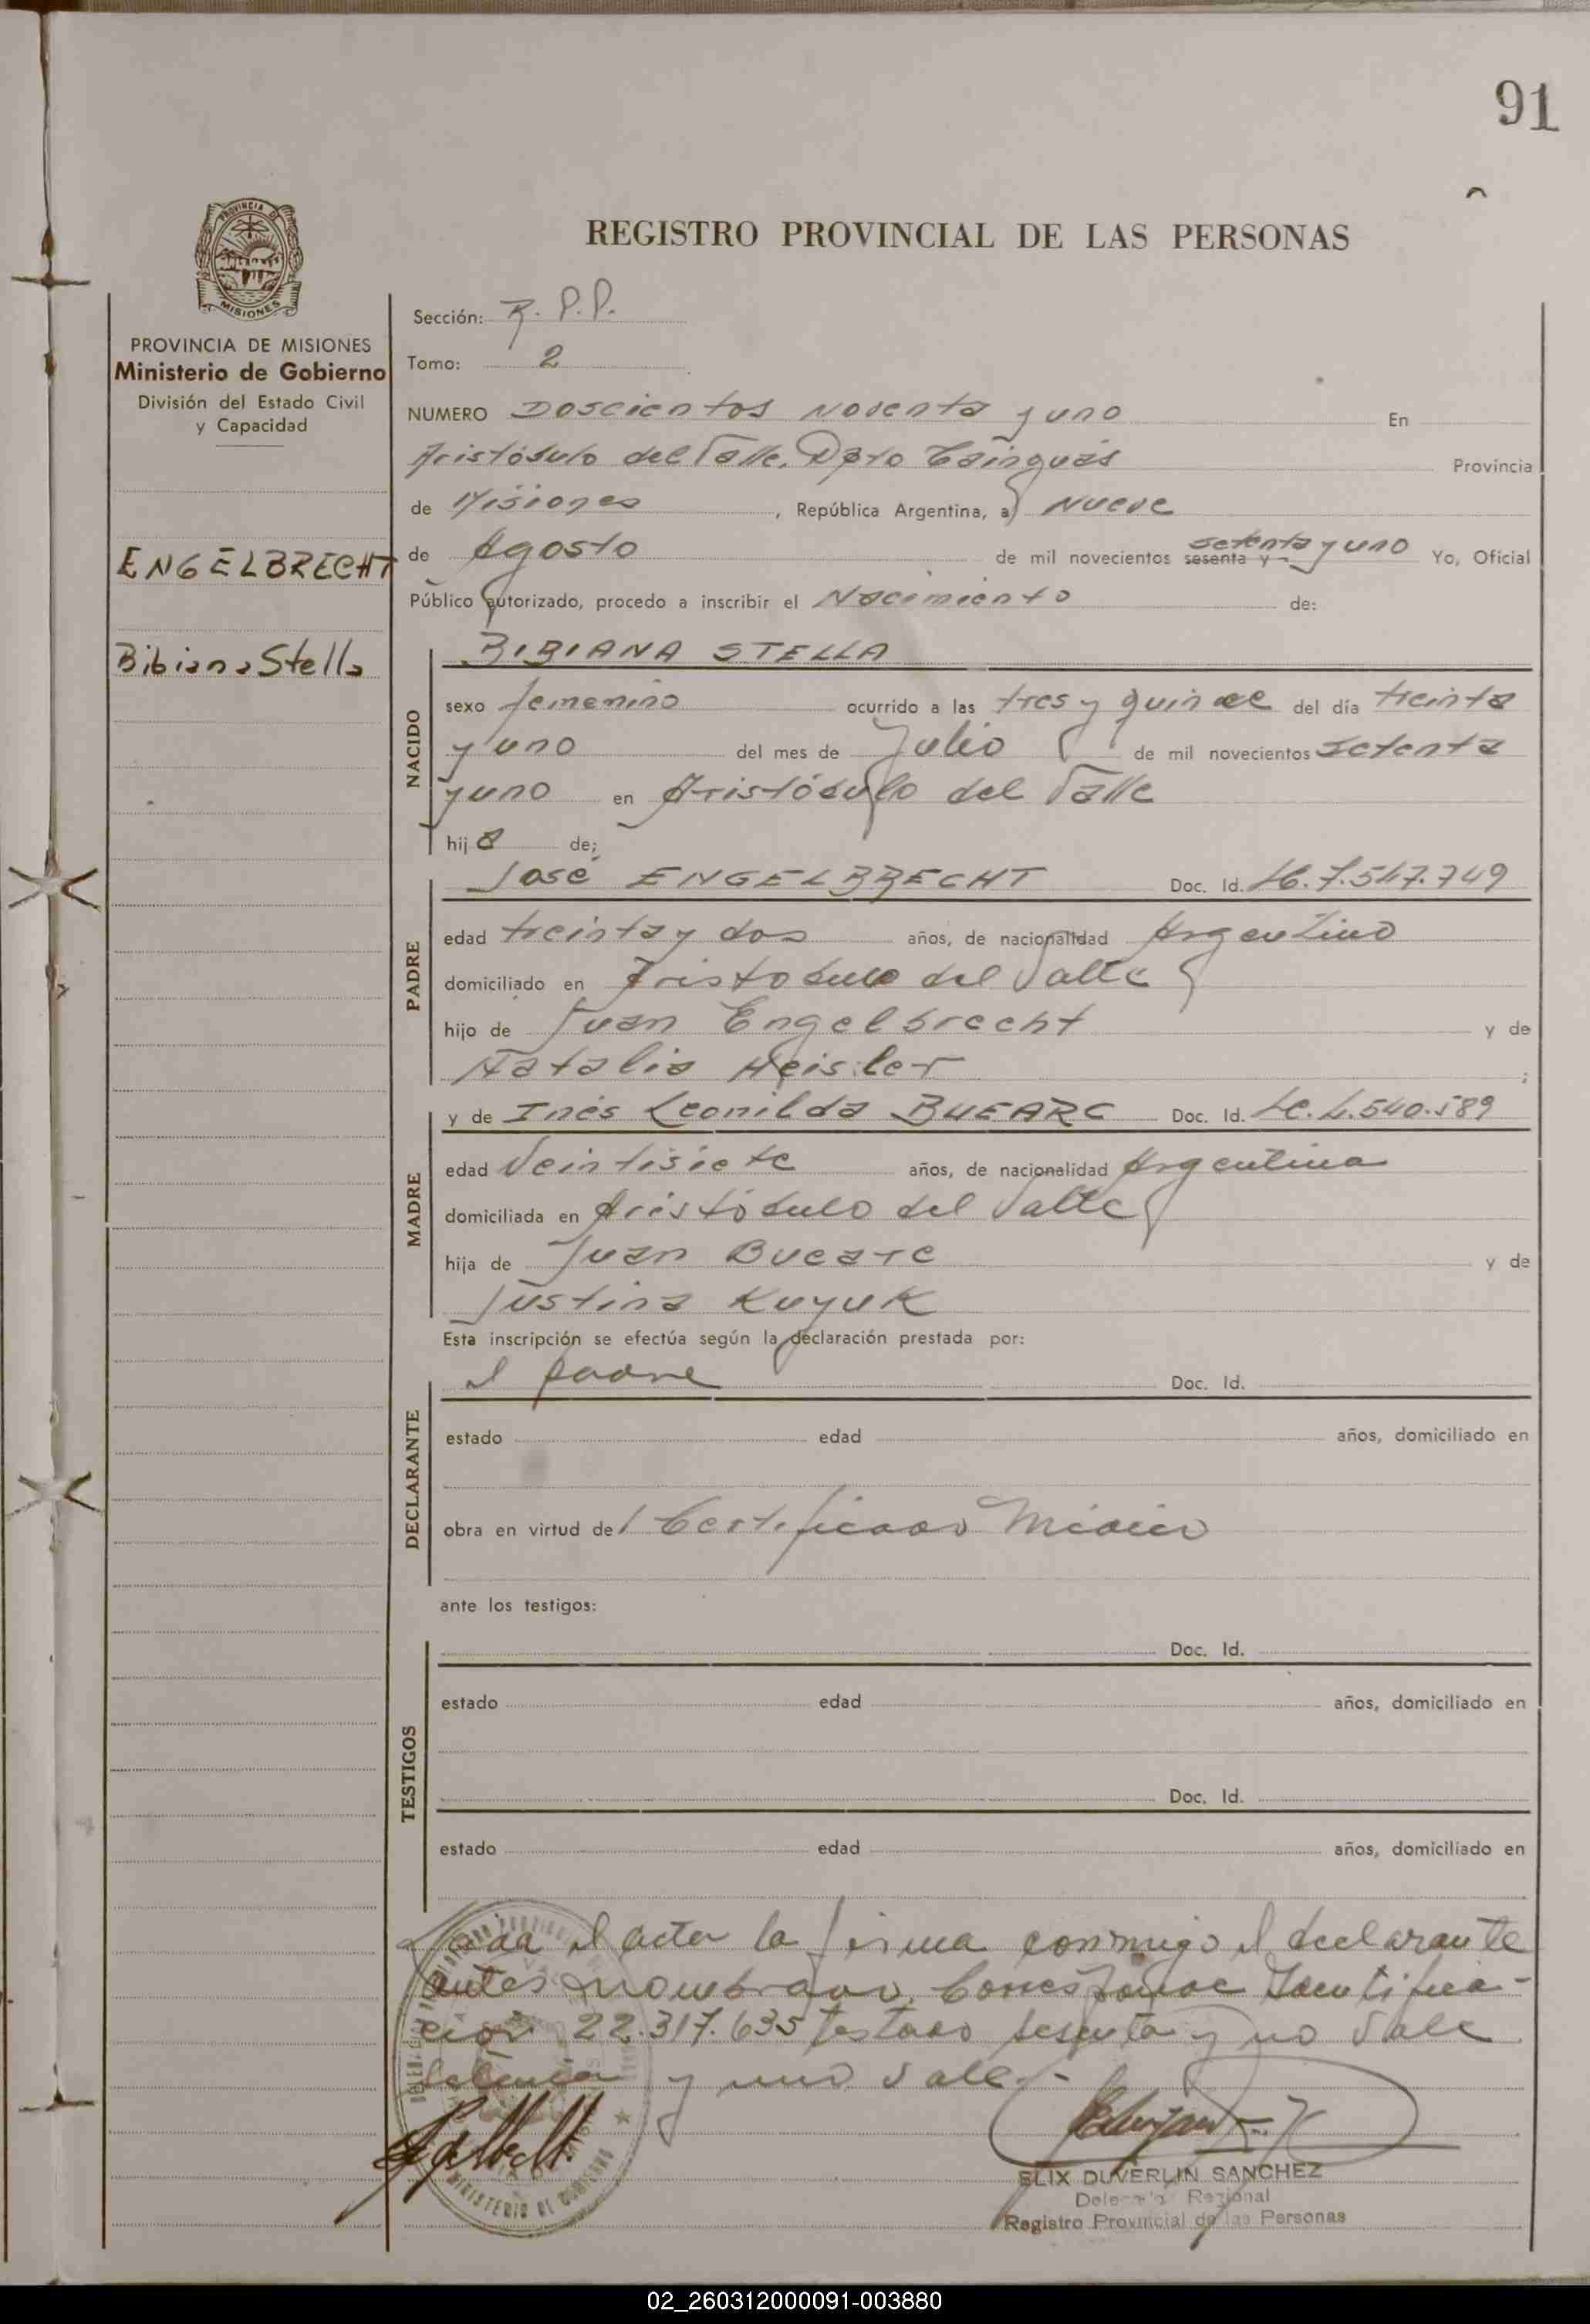 91
REGISTRO PROVINCIAL DE LAS PERSONAS
PROVINCIA DE MISIONES
Ministerio de Gobierno
División del Estado Civil
y Capacidad
ENGELBRECHT
Bibiana Stella
Sección: R. P.P.
Tomo: 2
NUMERO Doscientos Noventa y uno En
Aristóbulo del Valle. Dpto Cainguás Provincia
de Misiones, República Argentina, a Nueve
de Agosto de mil novecientos sesenta y setenta y uno Yo, Oficial
Público autorizado, procedo a inscribir el Nacimiento de:
NACIDO
BIBIANA STELLA
sexo femenino ocurrido a las tres y quince del día treinta
y uno del mes de Julio de mil novecientos setenta
y uno en Aristóbulo del Valle
hija de;
PADRE
José ENGELBRECHT Doc. Id. 7.547.749
edad treinta y dos años, de nacionalidad Argentino
domiciliado en Aristobulo del Valle
hijo de Juan Engelbrecht y de
Natalia Heisler ;
MADRE
y de Inés Leonilda BUEARC Doc. Id. 540.589
edad Veintisiete años, de nacionalidad Argentina
domiciliada en Aristóbulo del Valle
hija de Juan Buearc y de
Justina Kuyuk
Esta inscripción se efectúa según la declaración prestada por:
DECLARANTE
el padre Doc. Id.
estado edad años, domiciliado en
obra en virtud de Certificado Médico
ante los testigos:
TESTIGOS
Doc. Id.
estado edad años, domiciliado en
Doc. Id.
estado edad años, domiciliado en
el acta la firma conmigo el declarante
antes nombrado. Corresponde Identifica-
ción 22.317.635 testado sesenta y no vale
setenta y uno vale.-
ELIX DUVERLIN SANCHEZ
Delegado Regional
Registro Provincial de las Personas
02_260312000091-003880